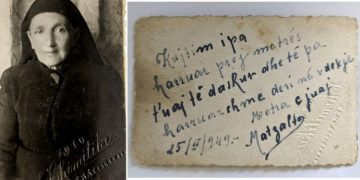 1949
Kujtim i pa
harruar prej motrës
t'uaj të dashur dhe të pa
harruarshme deri në vdekje
Motra e juaj
25/II/949.-